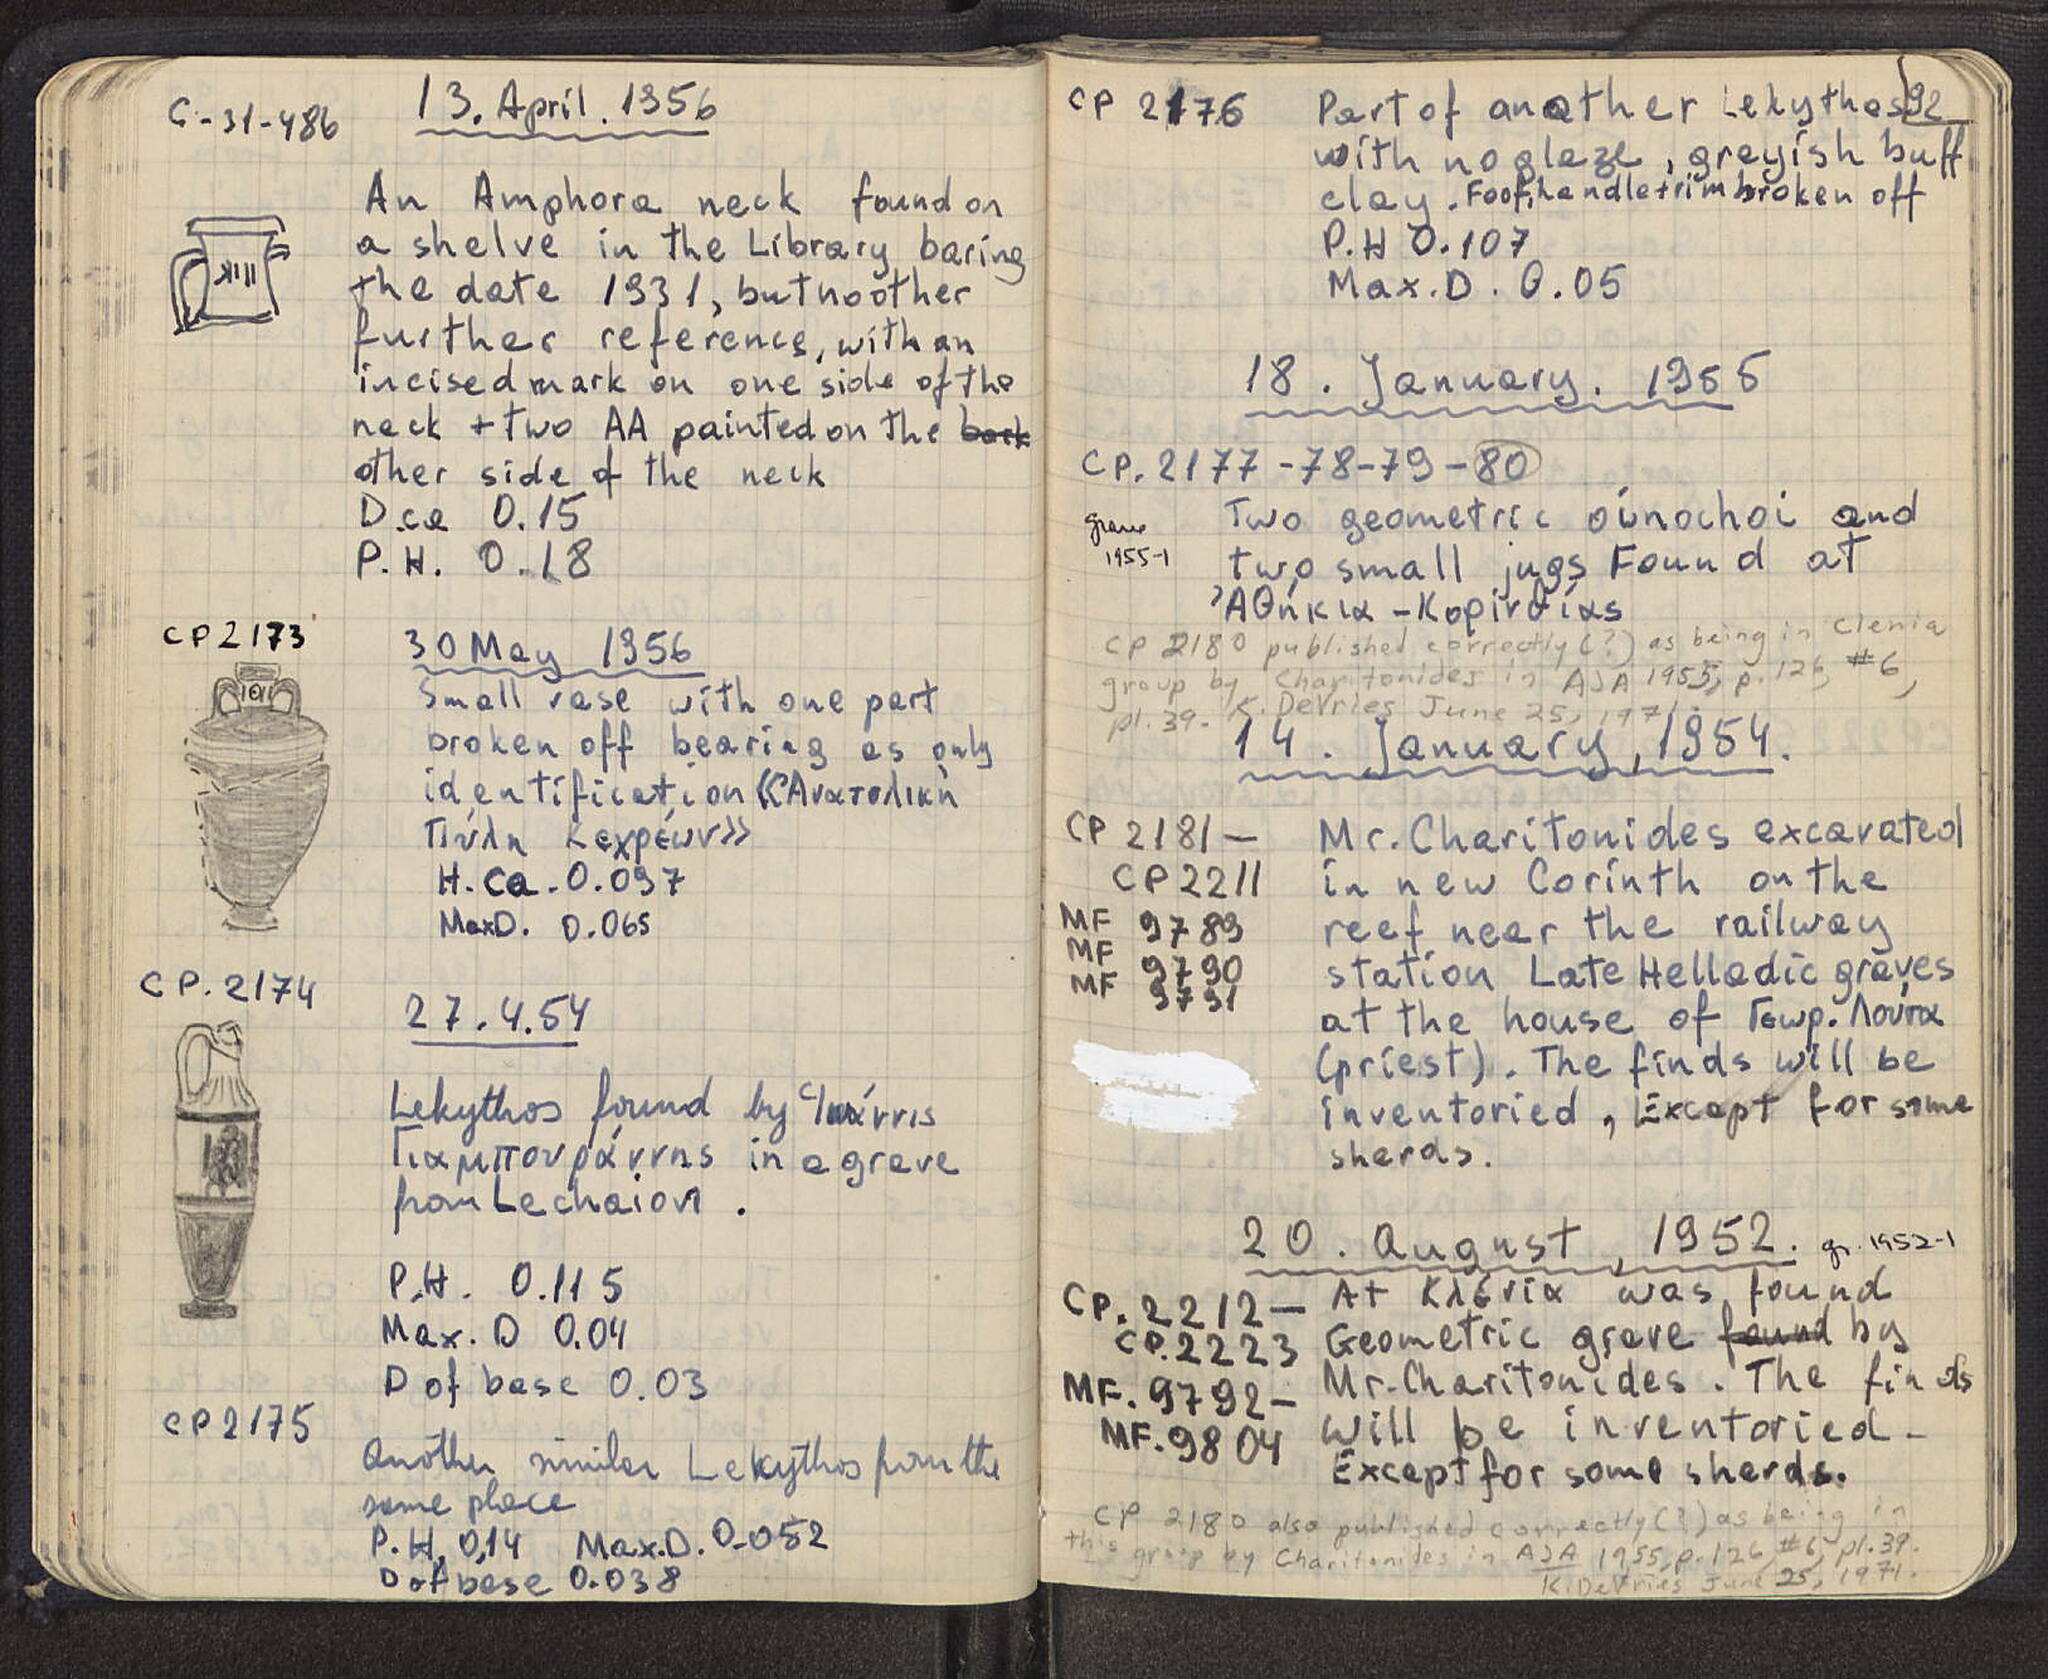 C-31-486
13. April. 1956
An Amphora neck found on
a shelve in the Library baring
the date 1931, but no other
further reference, with an
incised mark on one side of the
neck + two AA painted on the back
other side of the neck
D.ca 0.15
P.H. 0.18
CP 2173
30 May 1956
Small vase with one part
broken off bearing as only
identification «Ανατολική
Πύλη Κεχρέων»
H. ca. 0.097
Max D. 0.065
CP. 2174
27.4.54
Lekythos found by Ιωάννις
Γιαμπουράννης in a grave
from Lechaion.
P.H. 0.115
Max. D 0.04
D of base 0.03
CP 2175
Another similar Lekythos from the
same place
P.H. 0,14 Max.D. 0.052
D of base 0.038
92
CP 2176
Part of another Lekythos
with no glaze, greyish buff
clay. Foot, handle + rim broken off
P.H 0.107
Max. D. 0.05
18. January. 1955
CP. 2177-78-79-80
grave
1955-1
Two geometric oinochoi and
two small jugs Found at
Ἀθήκια - Κορίνθίας
CP 2180 published correctly(?) as being in Clenia
group by Charitonides in AJA 1955, p. 126, #6,
pl. 39. K. DeVries June 25, 1971.
14. January, 1954.
CP 2181-
CP 2211
MF 9789
MF 9790
MF 9791
Mr. Charitonides excavated
in new Corinth on the
reef near the railway
station Late Helladic graves
at the house of Γεωρ. Λούτα
(priest). The finds will be
inventoried, Except for some
sherds.
20. August, 1952. gr. 1952-1
CP. 2212-
CP. 2223
MF. 9792-
MF. 9804
At Κλένια was found
Geometric grave found by
Mr. Charitonides. The finds
will be inventoried-
Except for some sherds.
CP 2180 also published correctly(?) as being in
this group by Charitonides in AJA 1955, p. 126, #6, pl. 39.
K. DeVries June 25, 1971.